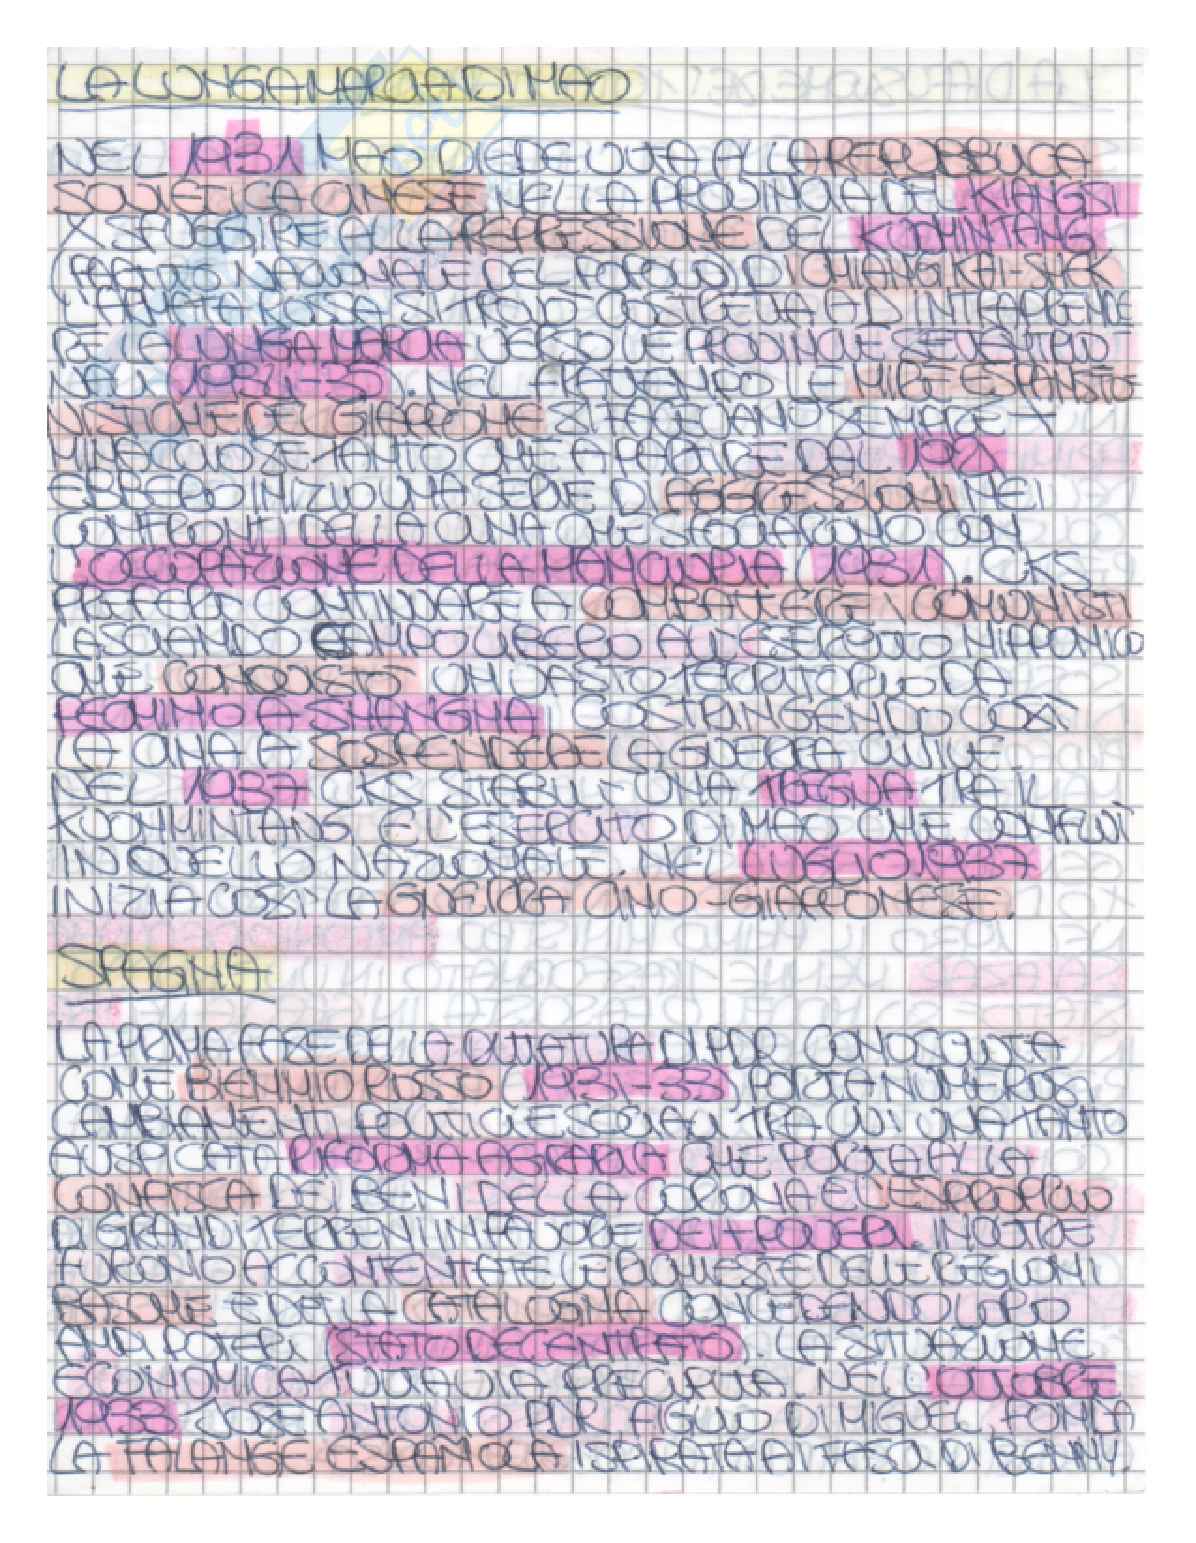 LA LUNGA MARCIA DI MAO
NEL 1931 MAO DIEDE VITA ALLA REPUBBLICA
SOVIETICA CINESE NELLA PROVINCIA DEL KIANGSI
X SFUGGIRE ALLA REPRESSIONE DEL KUOMINTANG
(PARTITO NAZIONALE DEL POPOLO) DI CHIANG KAI-SHEK
L'ARMATA ROSSA SI TROVÒ COSTRETTA AD INTRAPRENDE
RE LA LUNGA MARCIA VERSO LE PROVINCIE SETTENTRIO
NALI (1934-35). NEL FRATTEMPO LE MIRE ESPANSIO
NISTICHE DEL GIAPPONE SI FACEVANO SEMPRE +
MINACCIOSE TANTO CHE A PARTIRE DAL 1928
EBBERO INIZIO UNA SERIE DI AGGRESSIONI NEI
CONFRONTI DELLA CINA CHE SFOCIARONO CON
L'OCCUPAZIONE DELLA MANCIURIA (1931). CKS
PREFERÌ CONTINUARE A COMBATTERE I COMUNISTI
LASCIANDO CAMPO LIBERO ALL'ESERCITO NIPPONICO
CHE CONQUISTÒ UN VASTO TERRITORIO DA
PECHINO A SHANGHAI COSTRINGENDO COSÌ
LA CINA A SOSPENDERE LA GUERRA CIVILE
NEL 1937 CKS STABILÌ UNA TREGUA TRA IL
KUOHMINTANG E L'ESERCITO DI MAO CHE CONFLUÌ
IN QUELLO NAZIONALE. NEL LUGLIO 1937
INIZIA COSÌ LA GUERRA CINO-GIAPPONESE.
SPAGNA
LA PRIMA FASE DELLA DITTATURA DI PDR CONOSCIUTA
COME BIENNIO ROSSO (1931-33) PORTA NUMEROSI
CAMBIAMENTI POLITICI E SOCIALI TRA CUI UNA TANTO
AUSPICATA RIFORMA AGRARIA CHE PORTA ALLA
CONFISCA DEI BENI DELLA CORONA E L'ESPROPRIO
DI GRANDI TERRENI IN FAVORE DEI + POVERI. INOLTRE
FURONO ACCONTENTATE LE RICHIESTE DELLE REGIONI
BASCHE E DELLA CATALOGNA CONCEDENDO LORO
AMPI POTERI (STATO DECENTRATO). LA SITUAZIONE
ECONOMICA TUTTAVIA PRECIPITA. NELL'OTTOBRE
1933 JOSÉ ANTONIO PDR FIGLIO DI MIGUEL FONDA
LA FALANGE ESPAÑOLA ISPIRATA AI FASCI DI BENNY.